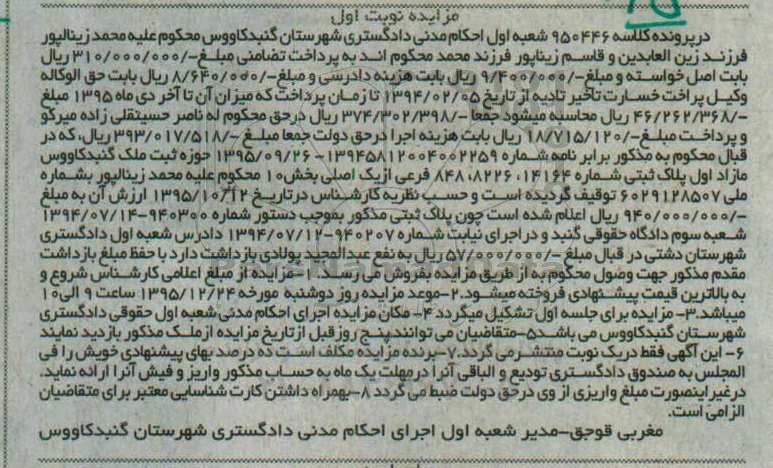 مزایده نوبت اول
درپرونده کلاسه ۹۵۰۴۴۶ شعبه اول احکام مدنی دادگستری شهرستان گنبدکاووس محکوم علیه محمد زینالپور
فرزند زین العابدین و قاسم زیناپور فرزند محمد محکوم اند به پرداخت تضامنی مبلغ-/۳۱۰/۰۰۰/۰۰۰ ریال
بابت اصل خواسته و مبلغ-/۹/۴۰۰/۰۰۰ ریال بابت هزینه دادرسی و مبلغ-/۸/۶۴۰/۰۰۰ ریال بابت حق الوکاله
وکیل پراخت خسارت تاخیر تادیه از تاریخ ۱۳۹۴/۰۲/۰۵ تا زمان پرداخت که میزان آن تا آخر دی ماه ۱۳۹۵ مبلغ
-/۴۶/۲۶۲/۳۶۸ ریال محاسبه میشود جمعا -/۳۷۴/۳۰۲/۳۹۸ ریال درحق محکوم له ناصر حسینقلی زاده میرکو
و پرداخت مبلغ-/۱۸/۷۱۵/۱۲۰ ریال بابت هزینه اجرا درحق دولت جمعا مبلغ -/۳۹۳/۰۱۷/۵۱۸ ریال، که در
قبال محکوم به مذکور برابر نامه شماره ۱۳۹۴۵۸۱۲۰۰۴۰۰۲۲۵۹- ۱۳۹۵/۰۹/۲۶ حوزه ثبت ملک گنبدکاووس
مازاد اول پلاک ثبتی شماره ۱۴۱۶۴، ۸۲۲۶، ۸۴۸ فرعی از یک اصلی بخش۱۰ محکوم علیه محمد زینالپور بشماره
ملی ۶۰۲۹۱۲۸۵۰۷ توقیف گردیده است و حسب نظریه کارشناس درتاریخ ۱۳۹۵/۱۰/۱۲ ارزش آن به مبلغ
-/۹۴۰/۰۰۰/۰۰۰ ریال اعلام شده است چون پلاک ثبتی مذکور بموجب دستور شماره ۹۴۰۳۰۰-۱۳۹۴/۰۷/۱۴
شعبه سوم دادگاه حقوقی گنبد و در اجرای نیابت شماره ۹۴۰۲۰۷-۱۳۹۴/۰۷/۱۲ دادرس شعبه اول دادگستری
شهرستان دشتی در قبال مبلغ -/۵۷/۰۰۰/۰۰۰ ریال به نفع عبدالمجید پولادی بازداشت دارد با حفظ مبلغ بازداشت
مقدم مذکور جهت وصول محکوم به از طریق مزایده بفروش می رسد.۱-مزایده از مبلغ اعلامی کارشناس شروع و
به بالاترین قیمت پیشنهادی فروخته میشود.۲-موعد مزایده روز دوشنبه مورخه ۱۳۹۵/۱۲/۲۴ ساعت ۹ الی۱۰
میباشد.۳- مزایده برای جلسه اول تشکیل میگردد ۴- مکان مزایده اجرای احکام مدنی شعبه اول حقوقی دادگستری
شهرستان گنبدکاووس می باشد۵-متقاضیان می توانند پنج روز قبل از تاریخ مزایده ازملک مذکور بازدید نمایند
۶- این آگهی فقط دریک نوبت منتشر می گردد.۷-برنده مزایده مکلف است ده درصد بهای پیشنهادی خویش را فی
المجلس به صندوق دادگستری تودیع و الباقی آنرا درمهلت یک ماه به حساب مذکور واریز و فیش آنرا ارائه نماید.
درغیراینصورت مبلغ واریزی از وی درحق دولت ضبط می گردد ۸-بهمراه داشتن کارت شناسایی معتبر برای متقاضیان
الزامی است.
مغربی قوجق-مدیر شعبه اول اجرای احکام مدنی دادگستری شهرستان گنبدکاووس